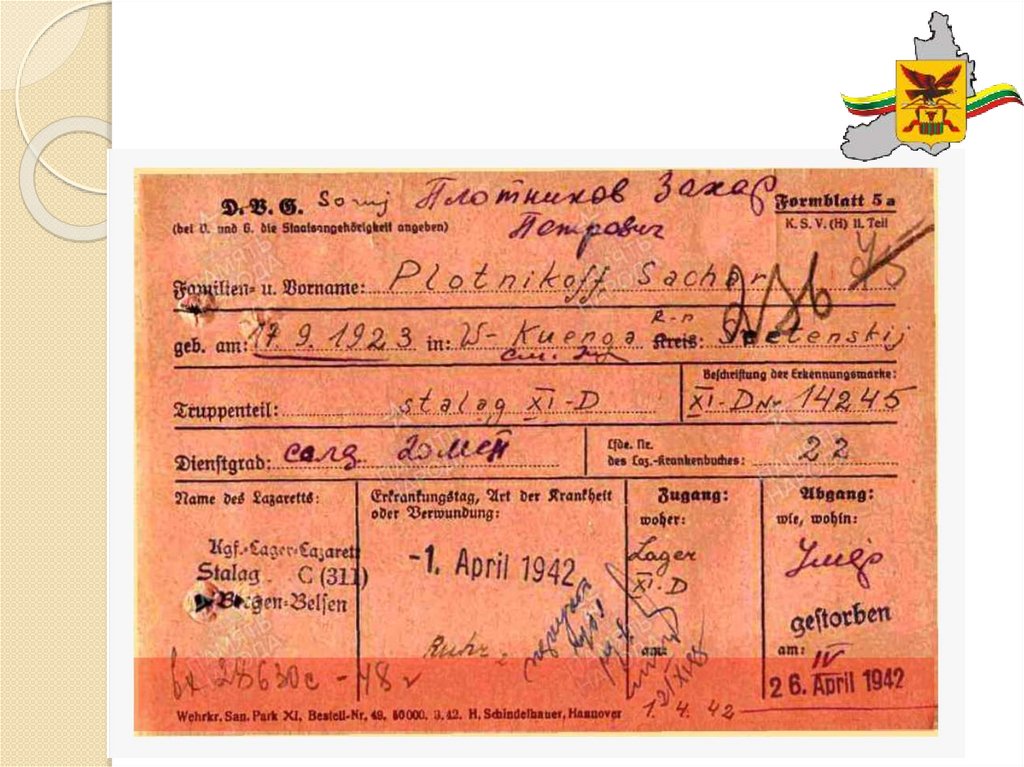 D.V.G. Sowj Плотников Захар
Петрович
Formblatt 5a
(bei V. und G. die Staatsangehörigkeit angeben)
K. S. V. (H) II. Teil
ПАМЯТЬ НАРОДА
Familien- u. Vorname: Plotnikoff Sachar
276
geb. am: 17.9.1923 in: W-Kuenga Kreis: Sretenskij
Р-н
Beschriftung der Erkennungsmarke:
Truppenteil: stalag XI-D
XI-D Nr 14245
Dienstgrad: солд
Lfde. Nr.
des Laz.-Krankenbuches: 22
Name des Lazaretts:
Erkrankungstag, Art der Krankheit
oder Verwundung:
Zugang:
woher:
Abgang:
wie, wohin:
Kgf.-Lager-Lazarett
Stalag C (311)
Bergen-Belsen
-1. April 1942
Lager
XI-D
Умер
gestorben
Ruhr
am:
1. 4. 42
am: IV
26. April 1942
вх 28630с - 48 г
Wehrkr. San. Park XI, Bestell-Nr. 49. 50000. 3.42. H. Schindelhauer, Hannover